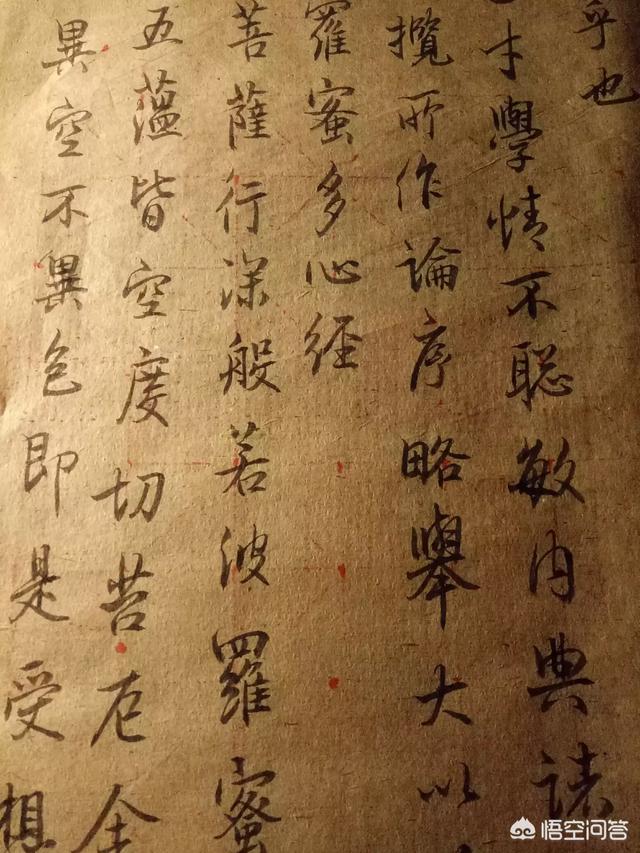 乎也
才學情不聡敏内典諸
攬所作論序略舉大以
羅蜜多心経
菩薩行深般若波羅蜜
五蕰皆空度切苦厄舍
異空不異色即是受想
悟空问答